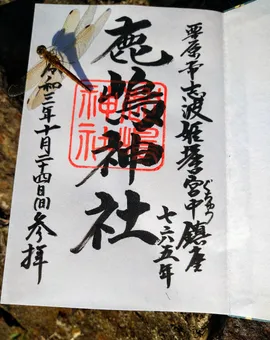 栗原市志波姫
宮中鎮座
七六五年
鹿嶋神社
鹿嶋神社
令和三年十月二十四日
参拝